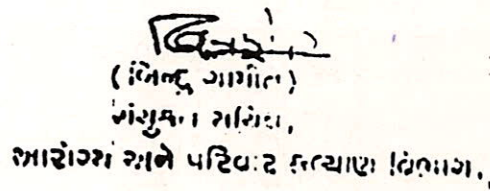 (બિન્દુ ગામીત)
સંયુક્ત સચિવ,
આરોગ્ય અને પરિવાર કલ્યાણ વિભાગ.